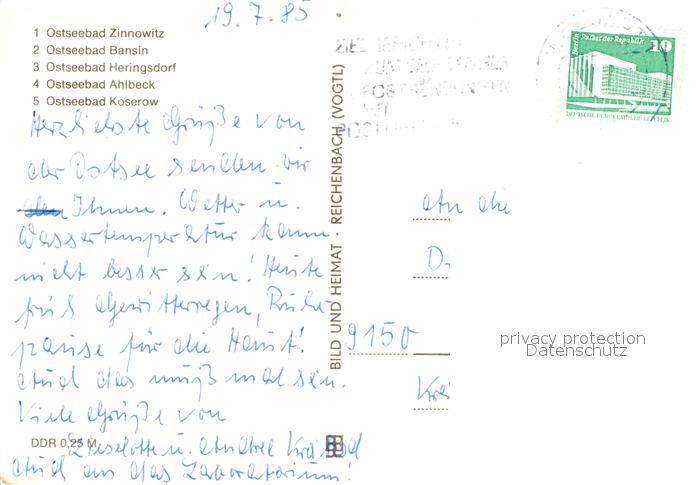 19.7.85
1 Ostseebad Zinnowitz
2 Ostseebad Bansin
3 Ostseebad Heringsdorf
4 Ostseebad Ahlbeck
5 Ostseebad Koserow
Herzlichste Grüße von
der Ostsee senden wir
Ihnen. Wetter u.
Wassertemperatur kann
nicht besser sein! Heute
früh Gewitterregen, Ruhe-
pause für die Haut!
Auch das muß mal sein.
Viele Grüße von
Lieselotte u.
Auch an das Laboratorium!
DDR 0,25 M
BILD UND HEIMAT REICHENBACH (VOGTL)
Berlin Palast der Republik
10
DEUTSCHE DEMOKRATISCHE REPUBLIK
An die
D.
9150
privacy protection
Datenschutz